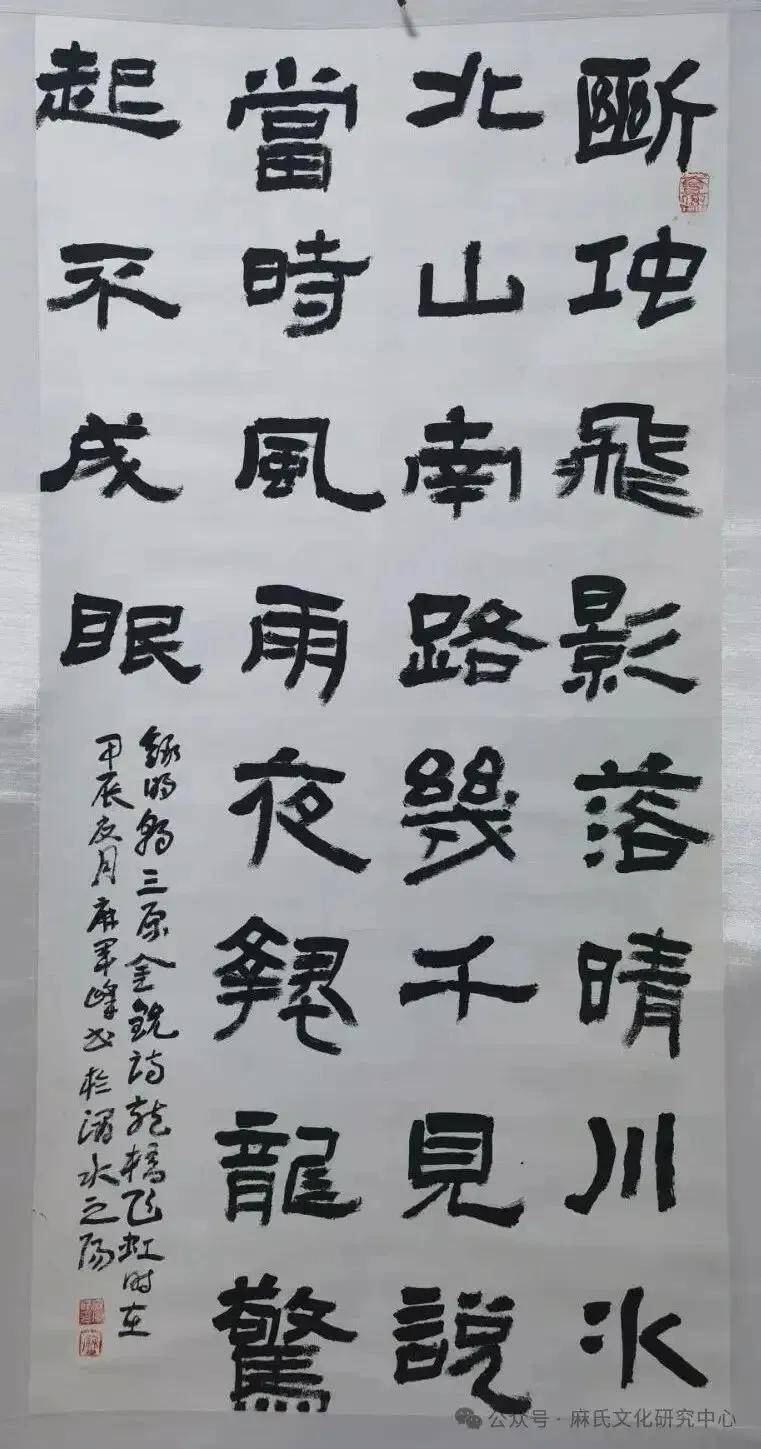 斷虹飛影落晴川水
北山南路幾千見說
當時風雨夜蟄龍驚
起不成眠
錄明朝三原金銳詩龍橋飞虹时在
甲辰夏月麻军峰书於渭水之陽
公众号·麻氏文化研究中心